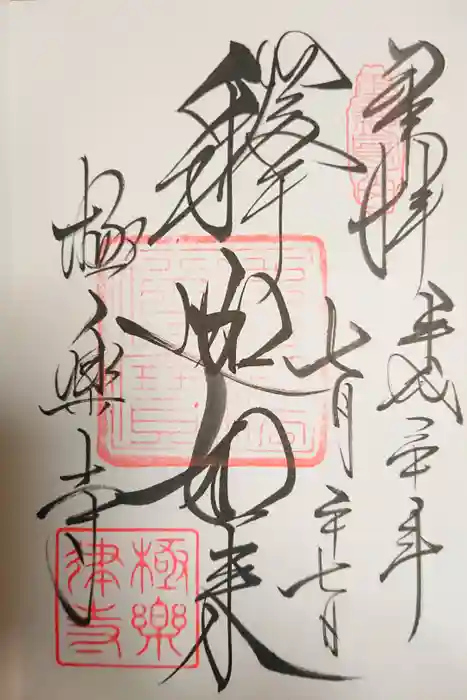 奉拝
平成三十年
七月二十七日
釋迦如来
極楽寺
極樂律寺